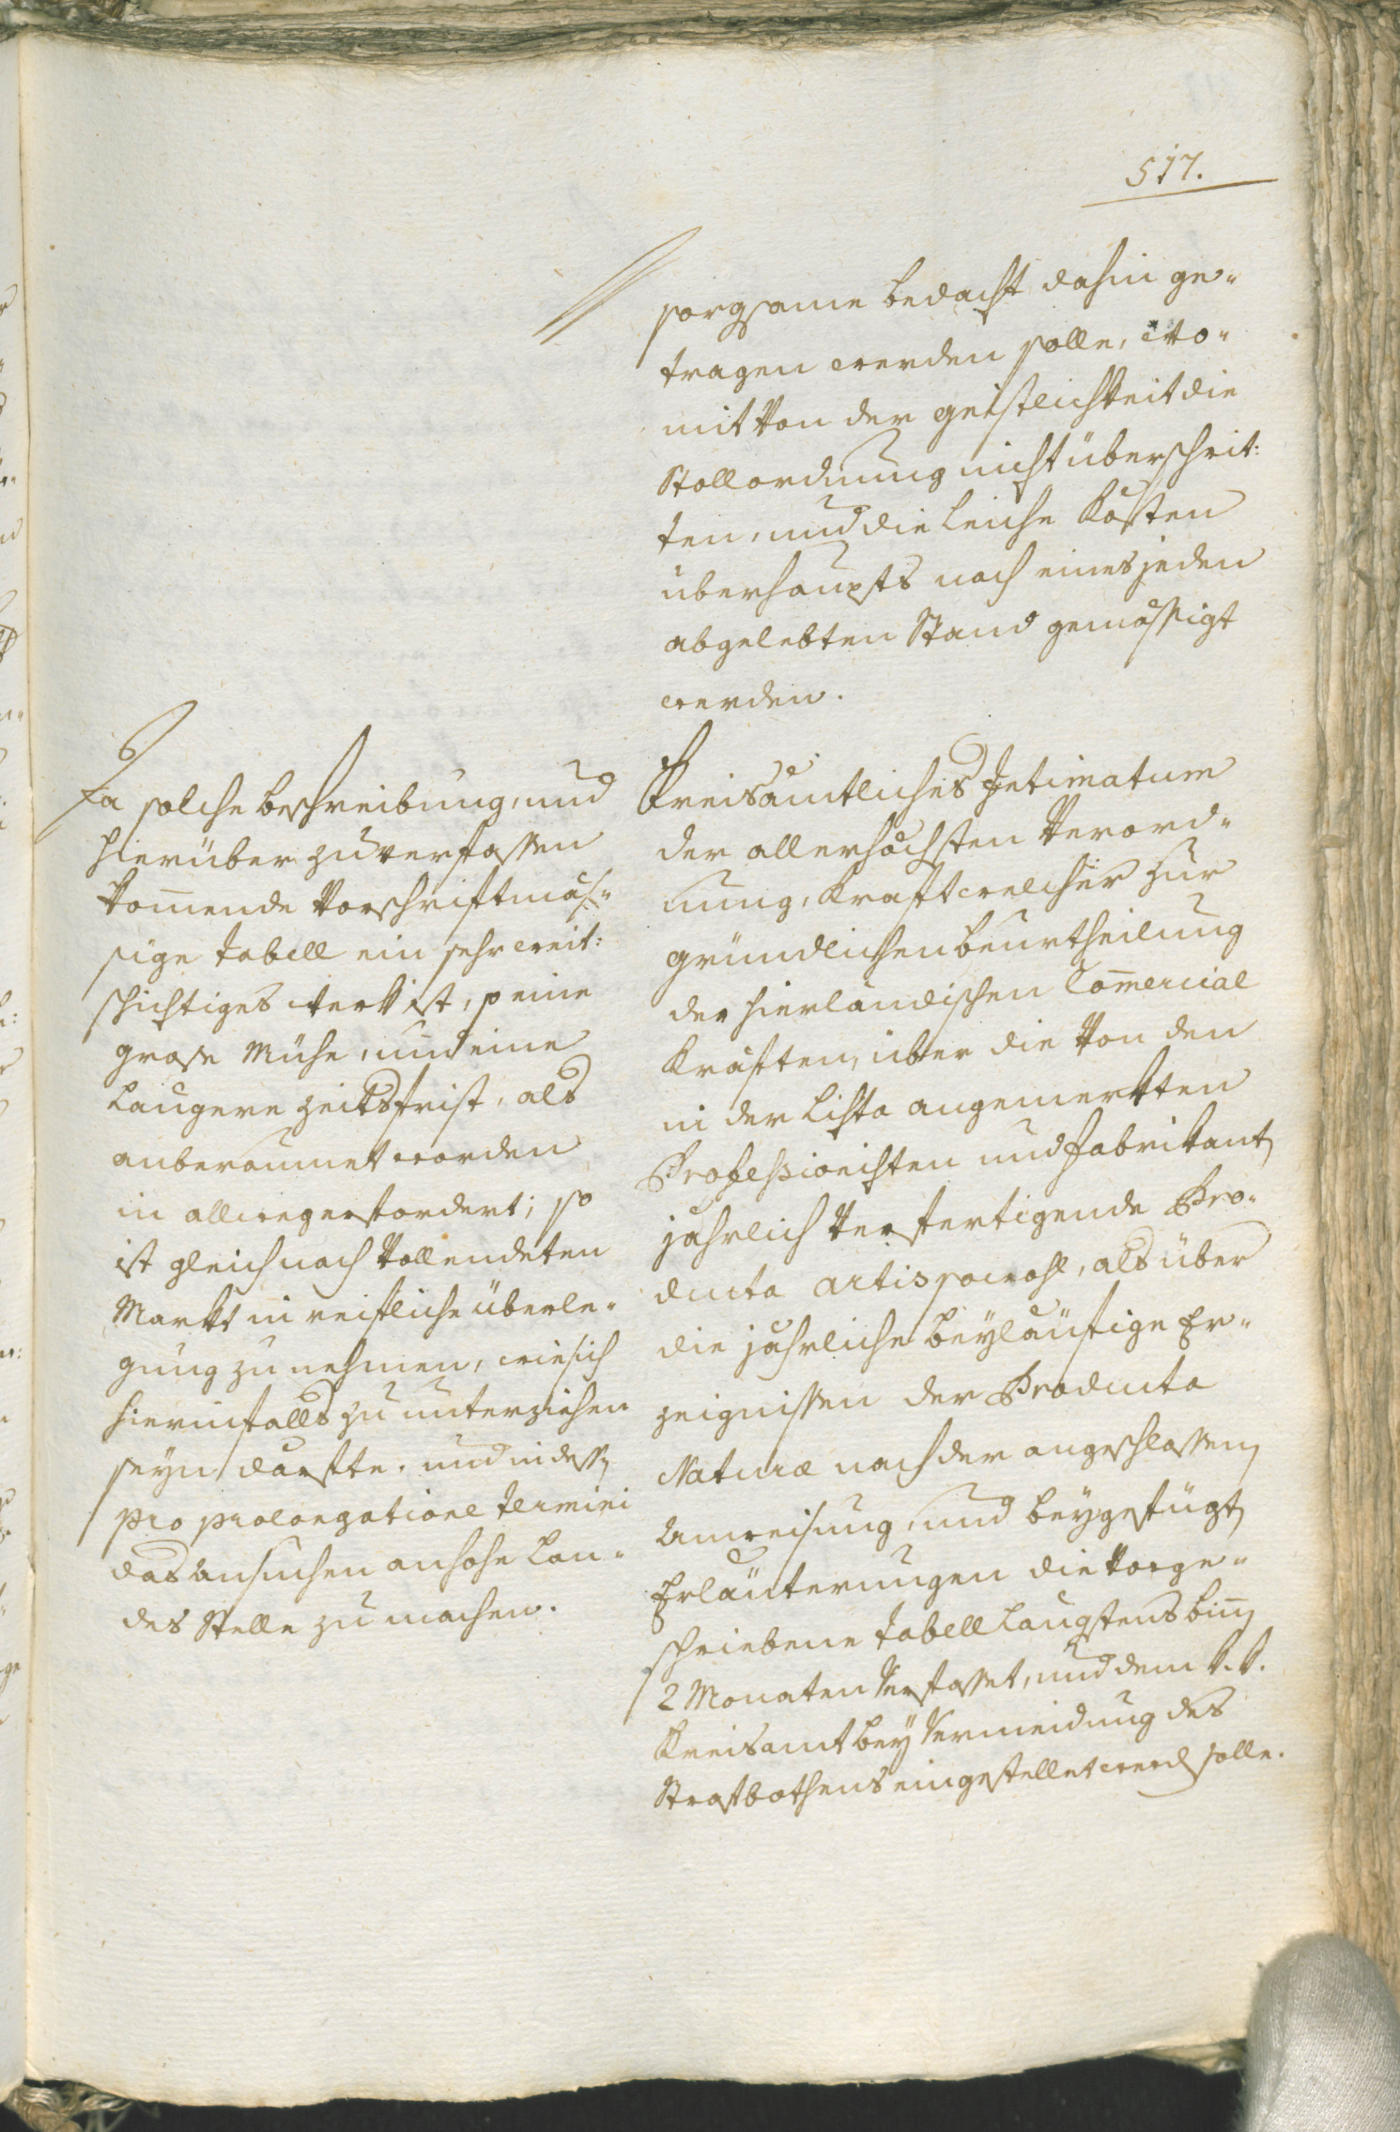 517.
sorgsame bedacht dahin ge-
tragen werden solle, wo-
mit von der geistlichkeit die
Stollordnung nicht überschrit:
ten, und die leiche Kösten
überhaupts nach eines jeden
abgelebten Stand gemässigt
werden.
Da solche beschreibung, und
hierüber zu verfassen
komende vorschriftmäs-
sige tabell ein sehr weit:
schichtiges werk ist, so eine
grose Mühe, und eine
langere zeitsfrist, als
anberaumet worden
in allweg erfordert; so
ist gleich nach vollendeten
Markt in reifliche überle-
gung zu nehmen, wie sich
hierinfalls zu unterziehen
seyn dörfte. und indessen
pro prolongatione termini
das ansuchen an hohe lan-
des Stelle zu machen.
Kreisämtliches Intimatum
der allerhöchsten verord-
nung, kraft welcher zur
gründlichen beurtheilung
der hierländischen Comercial
Kräften, über die von den
in der lista angemerkten
Professionisten und fabrikanten
jährlich verfertigende Pro-
ducta artis sowohl, als über
die jährliche beyläufige Er-
zeignissen der Producta
Naturæ nach der angeschlossenen
anweisung, und beygefügten
Erläuterungen die vorge-
schriebene tabell langstens binnen
2 Monaten verfasset, und dem k. k.
Kreisamt bey vermeidung des
Strafbothens eingestellet werden solle.